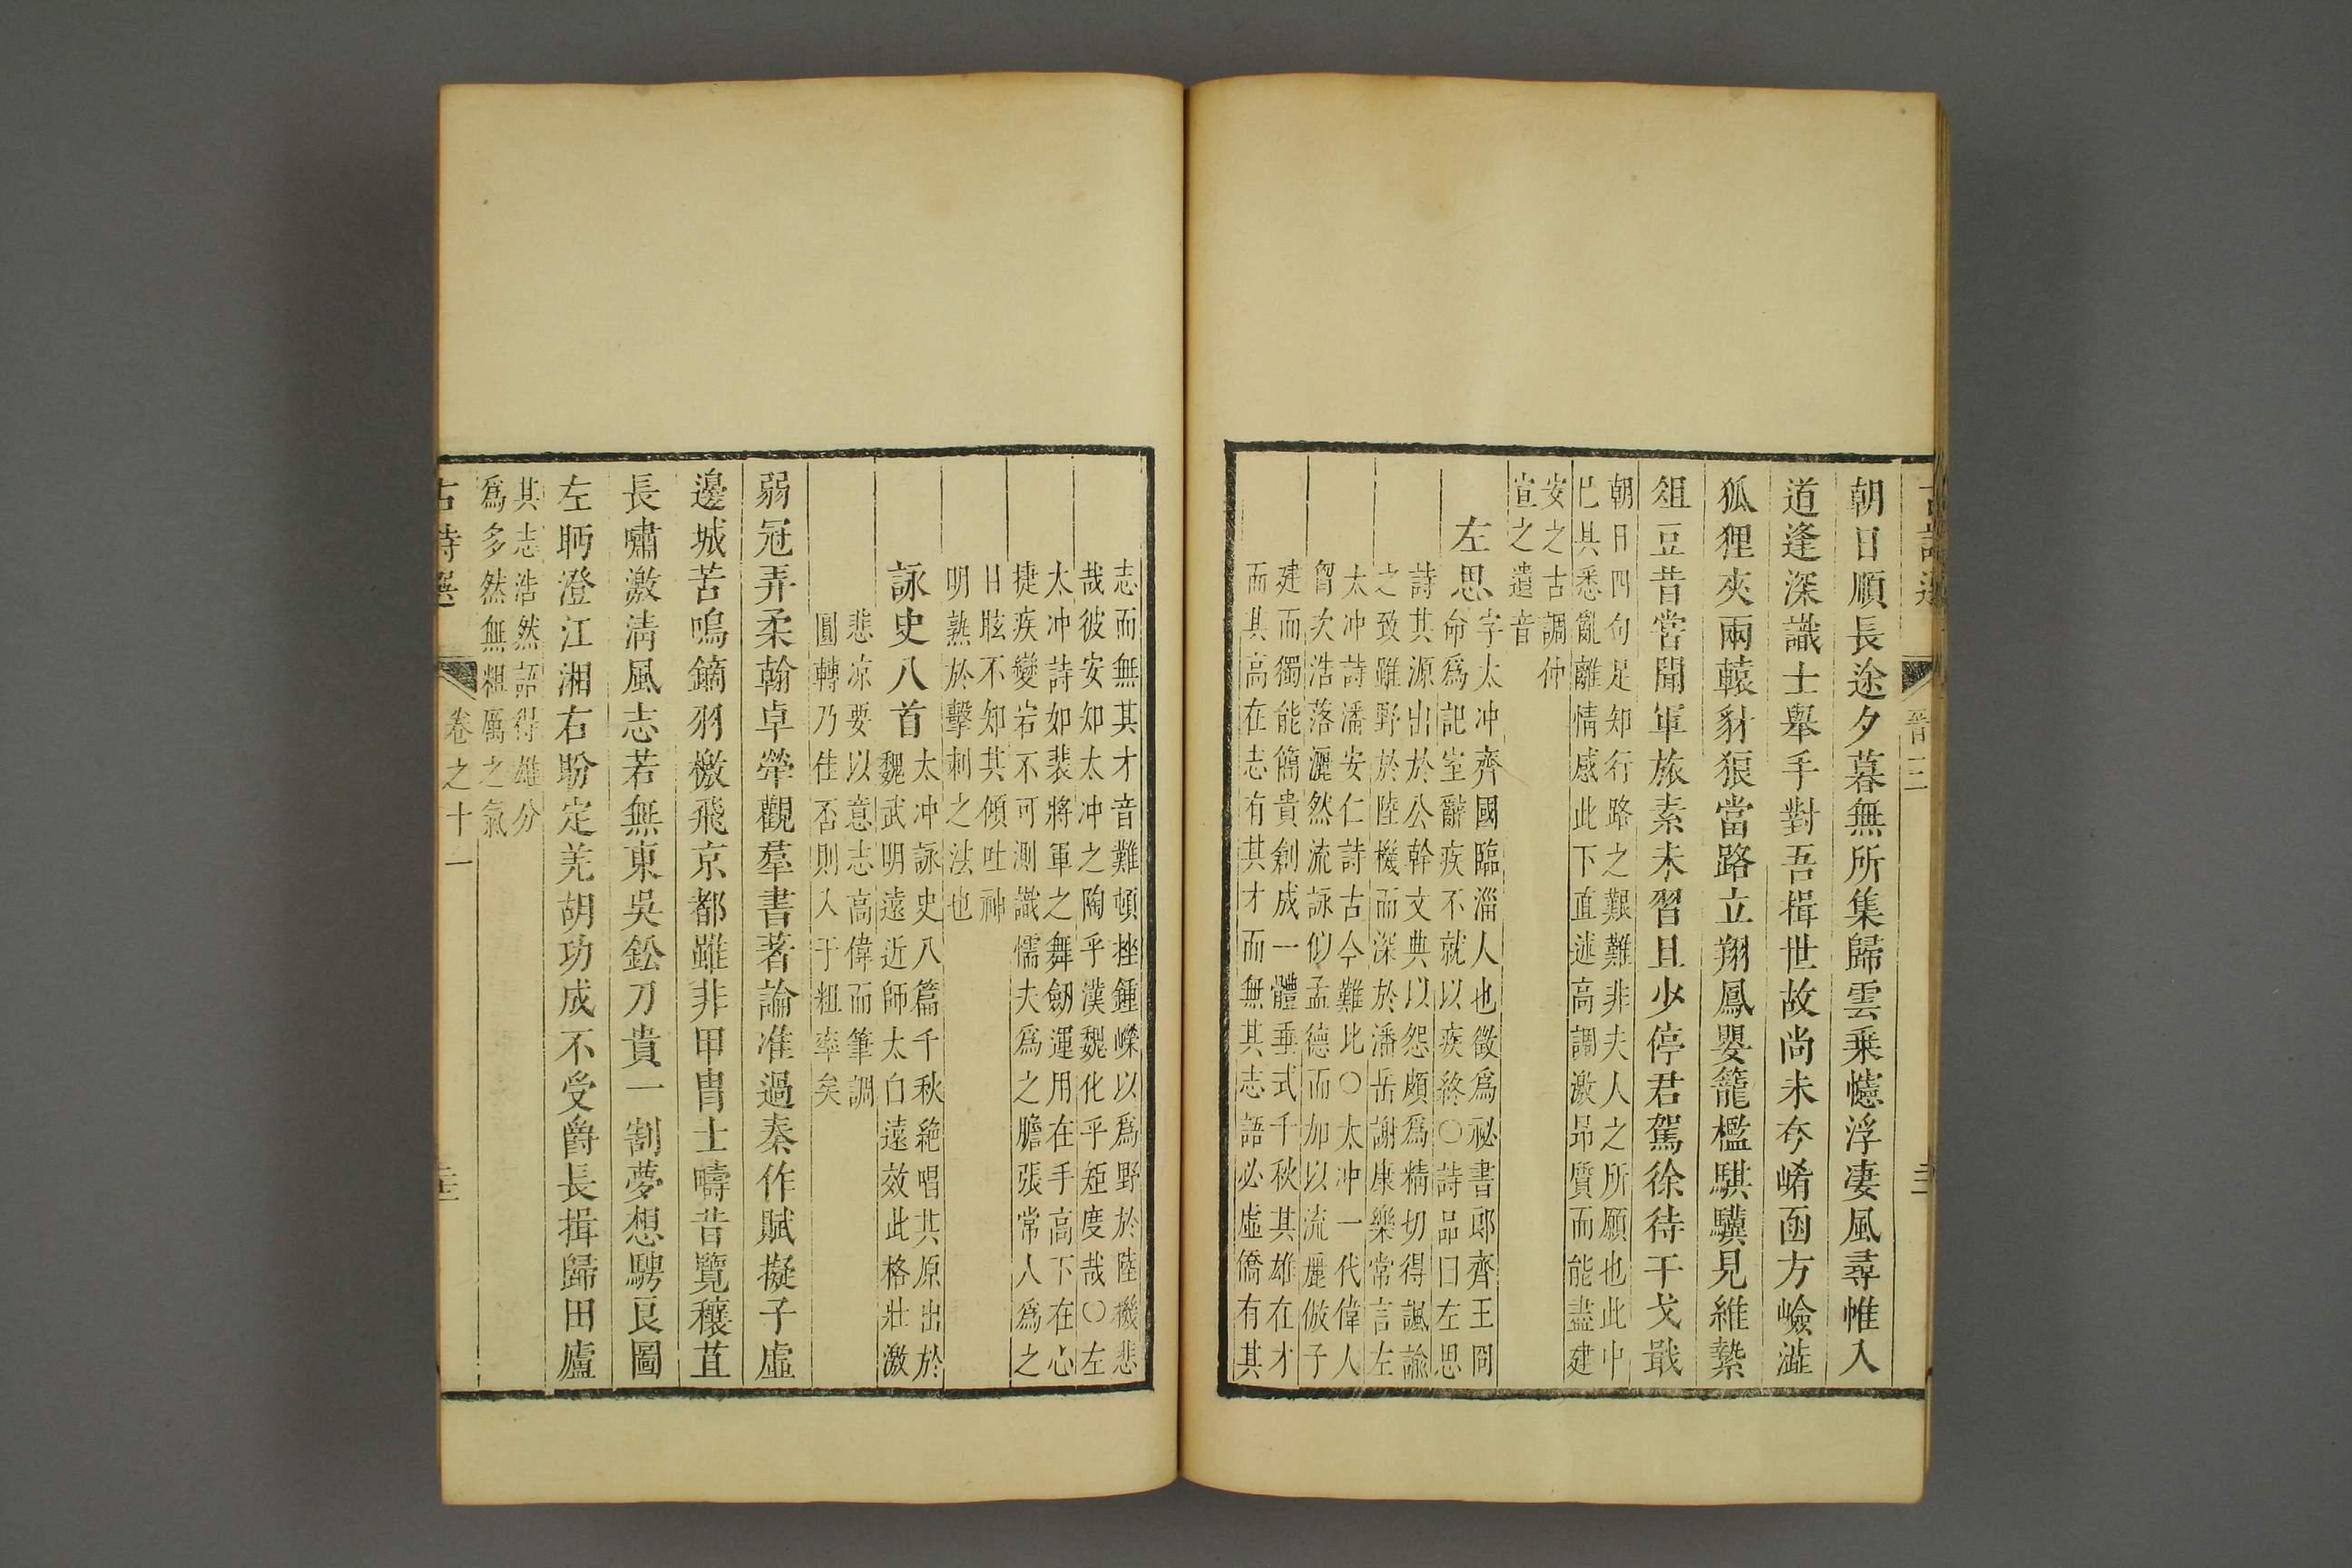 晉三
朝日順長途夕暮無所集歸雲乗幰浮凄風尋帷入
道逢深識士舉手對吾揖世故尚未夸崤函方嶮澁
狐狸夾兩轅豺狼當路立翔鳳嬰籠檻騏驥見維縶
俎豆昔嘗聞軍旅素未習且少停君駕徐待干戈戢
朝日四句足知行路之艱難非夫人之所願也此中
巳具悉亂離情感此下直述高調激昻質而能盡建
安之古調仲
宣之遺音
左思字太冲齊國臨淄人也徵爲祕書郎齊王冏
命爲記室辭疾不就以疾終〇詩品曰左思
詩其源出於公幹文典以怨頗爲精切得諷諭
之致雖野於陸機而深於潘岳謝康樂常言左
太冲詩潘安仁詩古今難比〇太冲一代偉人
胷次浩落灑然流詠似孟德而加以流麗倣子
建而獨能簡貴創成一體垂式千秋其雄在才
而其高在志有其才而無其志語必虛僑有其
志而無其才音難頓挫鍾嶸以爲野於陸機悲
哉彼安知太冲之陶乎漢魏化乎矩度哉〇左
太冲詩如裴將軍之舞劒運用在手高下在心
捷疾變宕不可測識懦夫爲之膽張常人爲之
目眩不知其傾吐神
明熟於擊刺之法也
詠史八首太冲詠史八篇千秋絶唱其原出於
魏武明遠近師太白遠效此格壯激
悲凉要以意志高偉而筆調
圓轉乃佳否則入于粗率矣
弱冠弄柔翰卓犖觀羣書著論准過秦作賦擬子虛
邊城苦鳴鏑羽檄飛京都雖非甲胄士疇昔覽穰苴
長嘯激淸風志若無東吳鈆刀貴一割夢想騁良圖
左眄澄江湘右盼定羌胡功成不受爵長揖歸田廬
其志浩然語得雄分
爲多然無粗厲之氣
古詩選 卷之十一